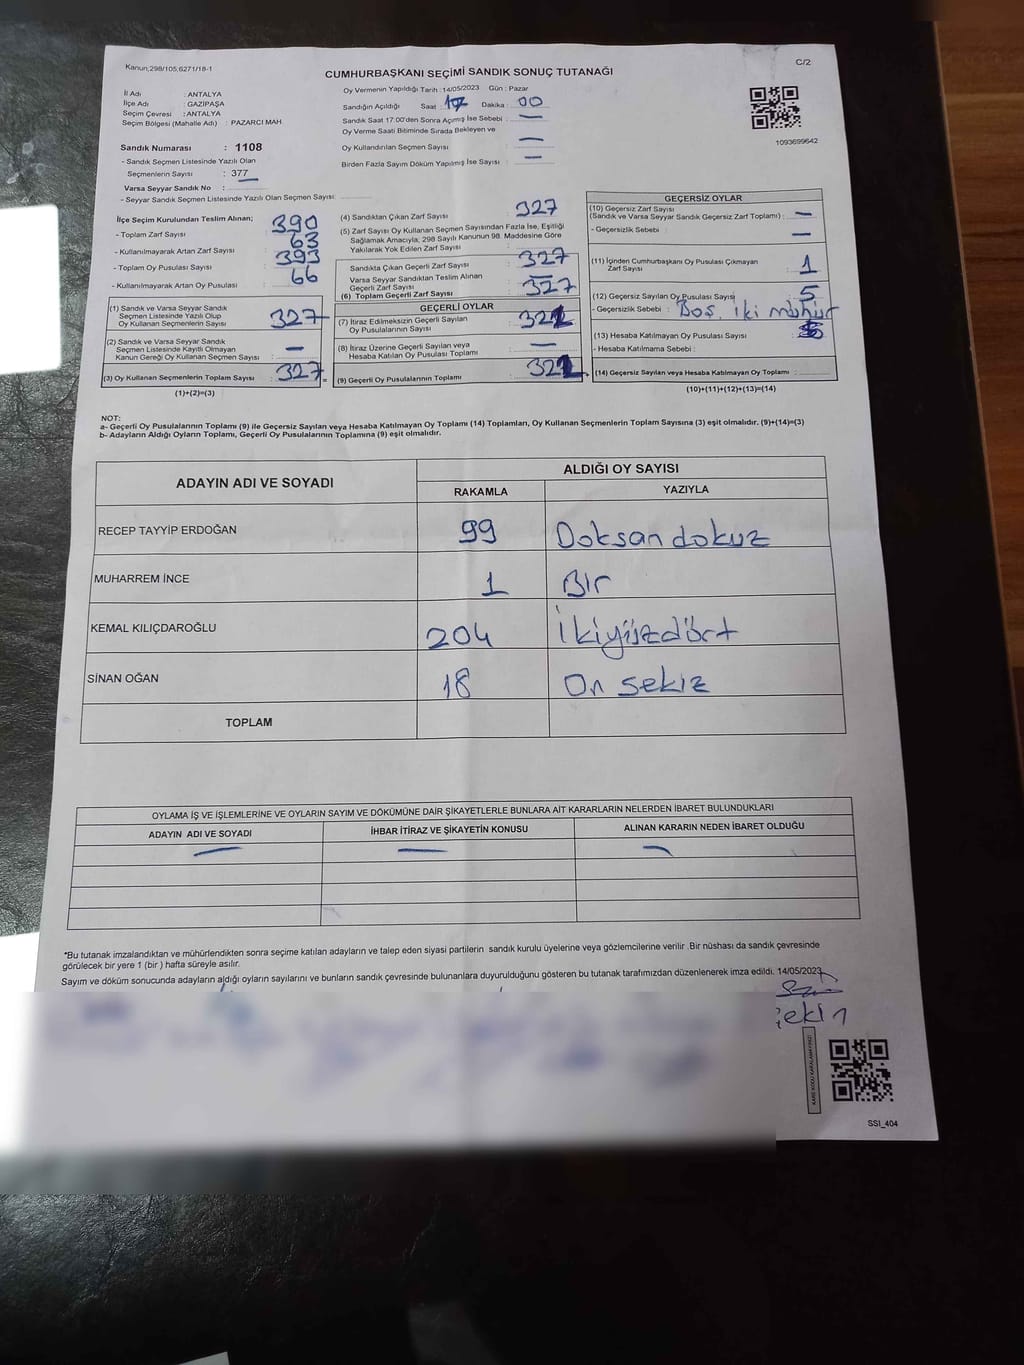 Kanun;298/105,6271/18-1
C/2
CUMHURBAŞKANI SEÇİMİ SANDIK SONUÇ TUTANAĞI
İl Adı : ANTALYA
İlçe Adı : GAZİPAŞA
Seçim Çevresi : ANTALYA
Seçim Bölgesi (Mahalle Adı) : PAZARCI MAH.
Sandık Numarası : 1108
- Sandık Seçmen Listesinde Yazılı Olan
Seçmenlerin Sayısı : 377
Varsa Seyyar Sandık No :
- Seyyar Sandık Seçmen Listesinde Yazılı Olan Seçmen Sayısı:
Oy Vermenin Yapıldığı Tarih : 14/05/2023 Gün : Pazar
Sandığın Açıldığı Saat : 17 Dakika : 00
Sandık Saat 17:00'den Sonra Açımış İse Sebebi : —
Oy Verme Saati Bitiminde Sırada Bekleyen ve
Oy Kullandırılan Seçmen Sayısı : —
Birden Fazla Sayım Döküm Yapılmış İse Sayısı : —
1093699642
İlçe Seçim Kurulundan Teslim Alınan;
- Toplam Zarf Sayısı : 390
- Kullanılmayarak Artan Zarf Sayısı : 63
- Toplam Oy Pusulası Sayısı : 393
- Kullanılmayarak Artan Oy Pusulası : 66
(1) Sandık ve Varsa Seyyar Sandık
Seçmen Listesinde Yazılı Olup
Oy Kullanan Seçmenlerin Sayısı : 327
(2) Sandık ve Varsa Seyyar Sandık
Seçmen Listesinde Kayıtlı Olmayan
Kanun Gereği Oy Kullanan Seçmen Sayısı : —
(3) Oy Kullanan Seçmenlerin Toplam Sayısı : 327
(1)+(2)=(3)
(4) Sandıktan Çıkan Zarf Sayısı : 327
(5) Zarf Sayısı Oy Kullanan Seçmen Sayısından Fazla İse, Eşitliği
Sağlamak Amacıyla, 298 Sayılı Kanunun 98. Maddesine Göre
Yakılarak Yok Edilen Zarf Sayısı :
Sandıkta Çıkan Geçerli Zarf Sayısı : 327
Varsa Seyyar Sandıktan Teslim Alınan
Geçerli Zarf Sayısı : —
(6) Toplam Geçerli Zarf Sayısı : 327
GEÇERLİ OYLAR
(7) İtiraz Edilmeksizin Geçerli Sayılan
Oy Pusulalarının Sayısı : 321
(8) İtiraz Üzerine Geçerli Sayılan veya
Hesaba Katılan Oy Pusulası Toplamı : —
(9) Geçerli Oy Pusulalarının Toplamı : 321
GEÇERSİZ OYLAR
(10) Geçersiz Zarf Sayısı
(Sandık ve Varsa Seyyar Sandık Geçersiz Zarf Toplamı) : —
- Geçersizlik Sebebi : —
(11) İçinden Cumhurbaşkanı Oy Pusulası Çıkmayan
Zarf Sayısı : 1
(12) Geçersiz Sayılan Oy Pusulası Sayısı : 5
- Geçersizlik Sebebi : Boş, iki mühür
(13) Hesaba Katılmayan Oy Pusulası Sayısı :
- Hesaba Katılmama Sebebi :
(14) Geçersiz Sayılan veya Hesaba Katılmayan Oy Toplamı :
(10)+(11)+(12)+(13)=(14)
NOT:
a- Geçerli Oy Pusulalarının Toplamı (9) ile Geçersiz Sayılan veya Hesaba Katılmayan Oy Toplamı (14) Toplamları, Oy Kullanan Seçmenlerin Toplam Sayısına (3) eşit olmalıdır. (9)+(14)=(3)
b- Adayların Aldığı Oyların Toplamı, Geçerli Oy Pusulalarının Toplamına (9) eşit olmalıdır.
ADAYIN ADI VE SOYADI
ALDIĞI OY SAYISI
RAKAMLA YAZIYLA
RECEP TAYYİP ERDOĞAN 99 Doksan dokuz
MUHARREM İNCE 1 Bir
KEMAL KILIÇDAROĞLU 204 İkiyüzdört
SİNAN OĞAN 18 On sekiz
TOPLAM
OYLAMA İŞ VE İŞLEMLERİNE VE OYLARIN SAYIM VE DÖKÜMÜNE DAİR ŞİKAYETLERLE BUNLARA AİT KARARLARIN NELERDEN İBARET BULUNDUKLARI
ADAYIN ADI VE SOYADI İHBAR İTİRAZ VE ŞİKAYETİN KONUSU ALINAN KARARIN NEDEN İBARET OLDUĞU
— — —
*Bu tutanak imzalandıktan ve mühürlendikten sonra seçime katılan adayların ve talep eden siyasi partilerin sandık kurulu üyelerine veya gözlemcilerine verilir .Bir nüshası da sandık çevresinde
görülecek bir yere 1 (bir ) hafta süreyle asılır.
Sayım ve döküm sonucunda adayların aldığı oyların sayılarını ve bunların sandık çevresinde bulunanlara duyurulduğunu gösteren bu tutanak tarafımızdan düzenlenerek imza edildi. 14/05/2023
SSI_404